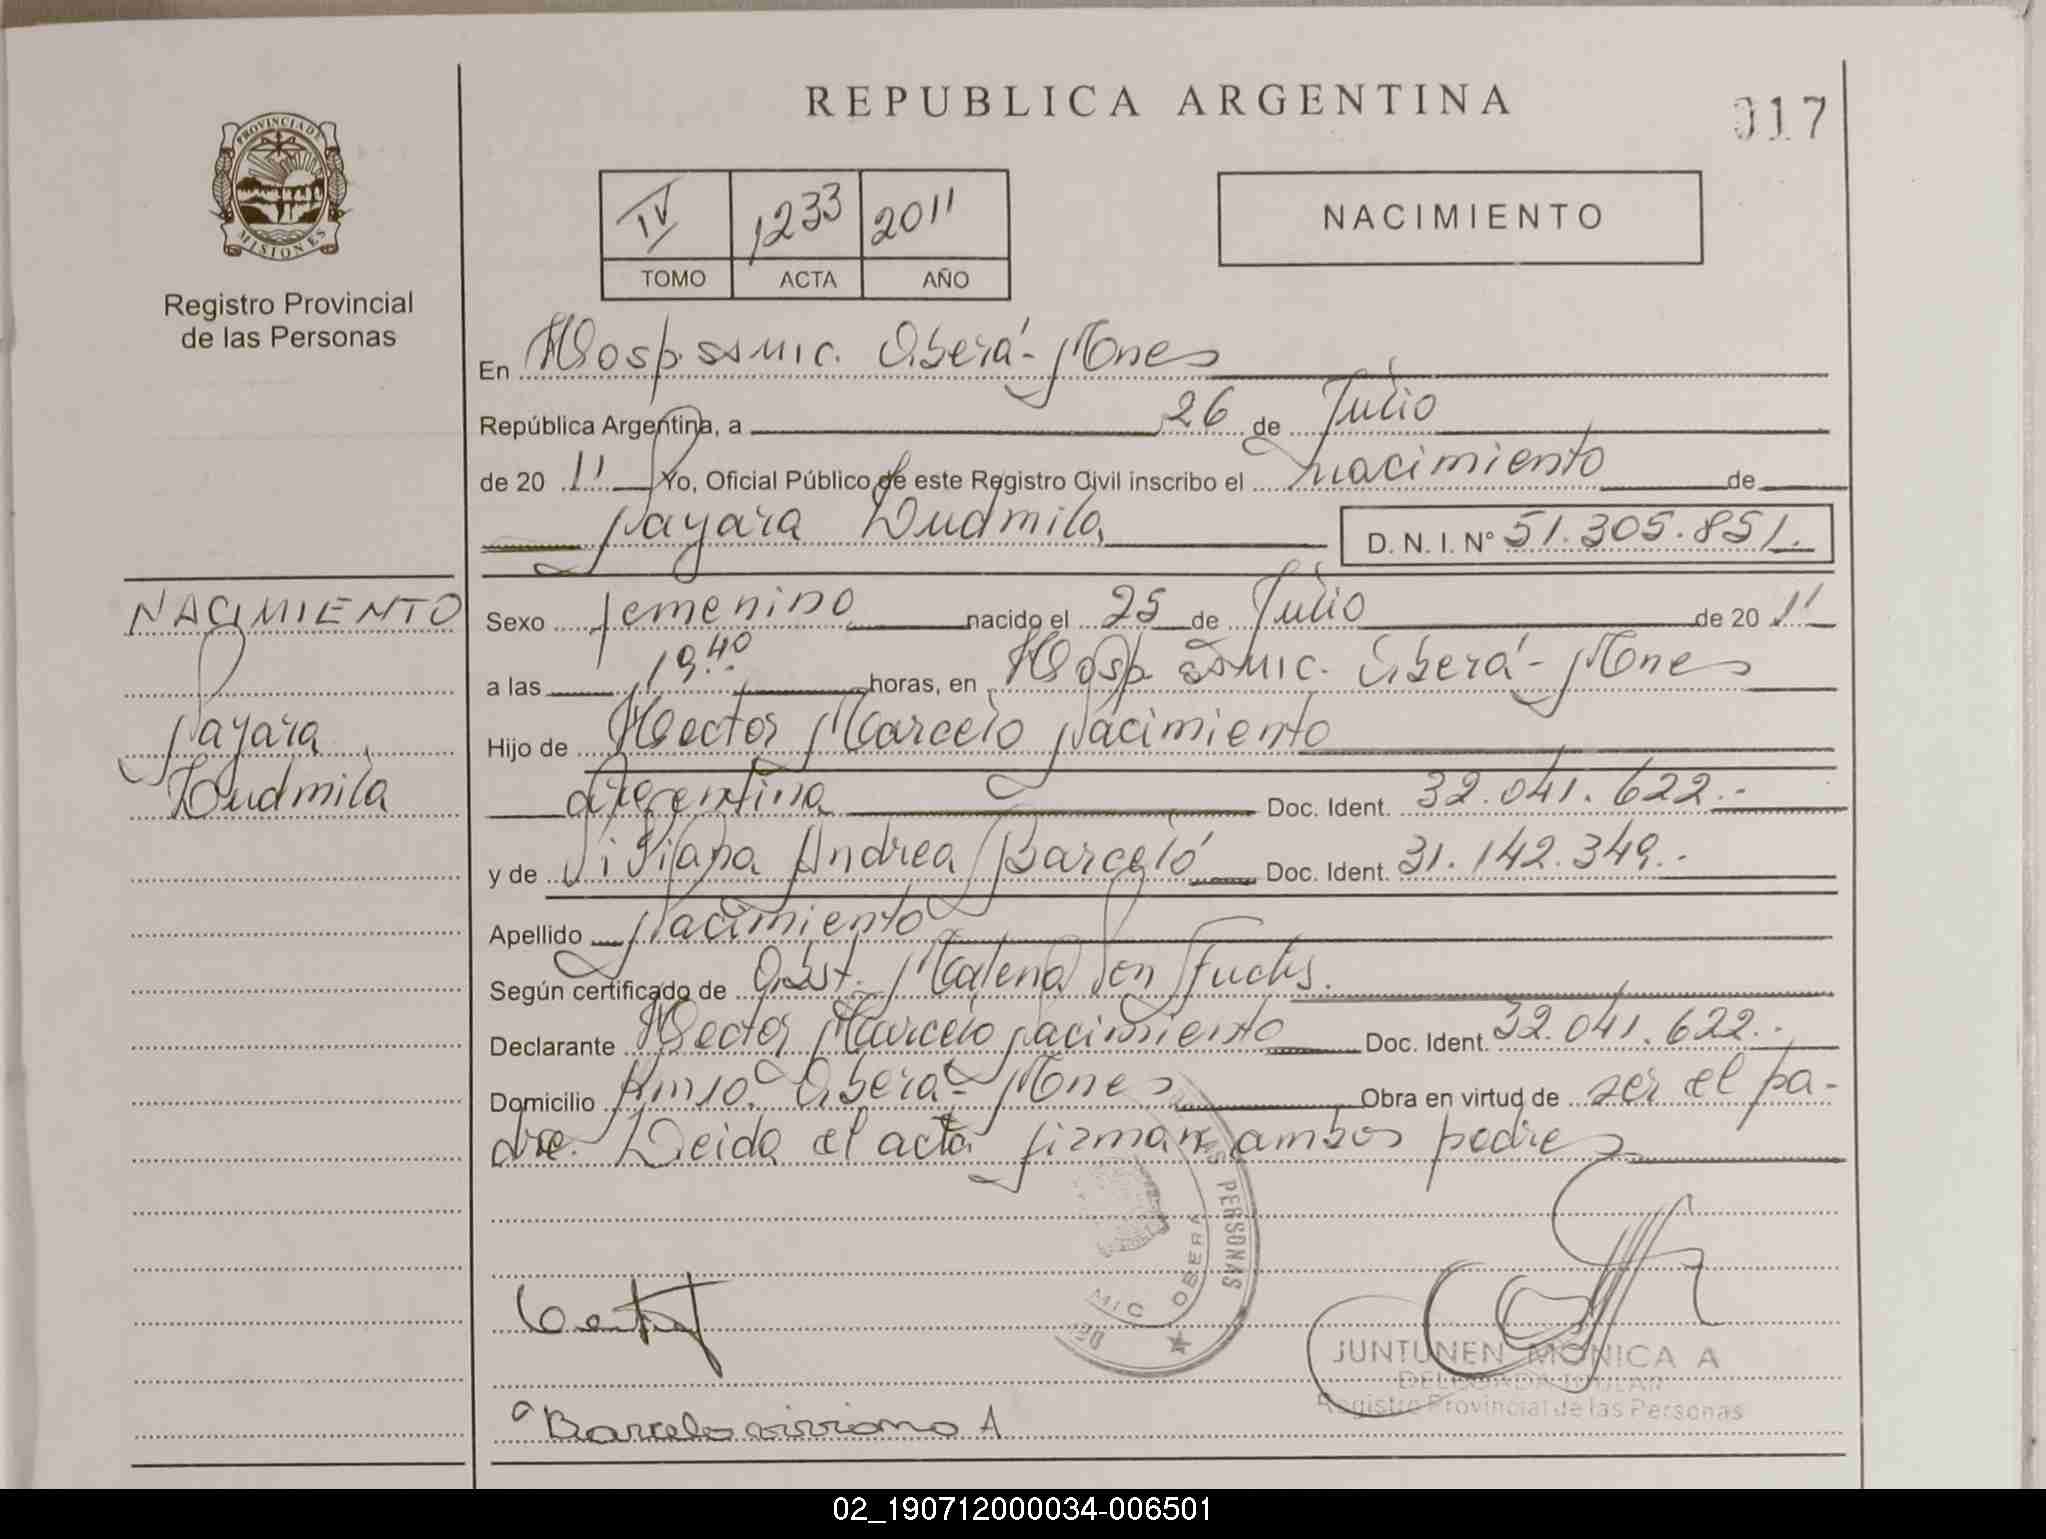 REPUBLICA ARGENTINA
017
PROVINCIA DE
MISIONES
Registro Provincial
de las Personas
IV 1233 2011
TOMO ACTA AÑO
NACIMIENTO
En Hosp. SAMIC. Oberá - Mnes
República Argentina, a 26 de Julio
de 20 11 Yo, Oficial Público de este Registro Civil inscribo el nacimiento de
Nayara Ludmila D. N. I. N° 51.305.851.
NACIMIENTO
Nayara
Ludmila
Sexo femenino nacido el 25 de Julio de 20 11
a las 19.40 horas, en Hosp. SAMIC. Oberá - Mnes
Hijo de Hector Marcelo Nacimiento
Argentina Doc. Ident. 32.041.622.-
y de Viviana Andrea Barceló Doc. Ident. 31.142.349.-
Apellido Nacimiento
Según certificado de Obst. Malena Fuchs.
Declarante Hector Marcelo Nacimiento Doc. Ident. 32.041.622.-
Domicilio Oberá - Mnes Obra en virtud de ser el pa-
dre. Leida el acta firman ambos padres
PERSONAS
OBERA
JUNTUNEN MONICA A
DELEGADA TITULAR
Registro Provincial de las Personas
Barcelo Viviana A
02_190712000034-006501